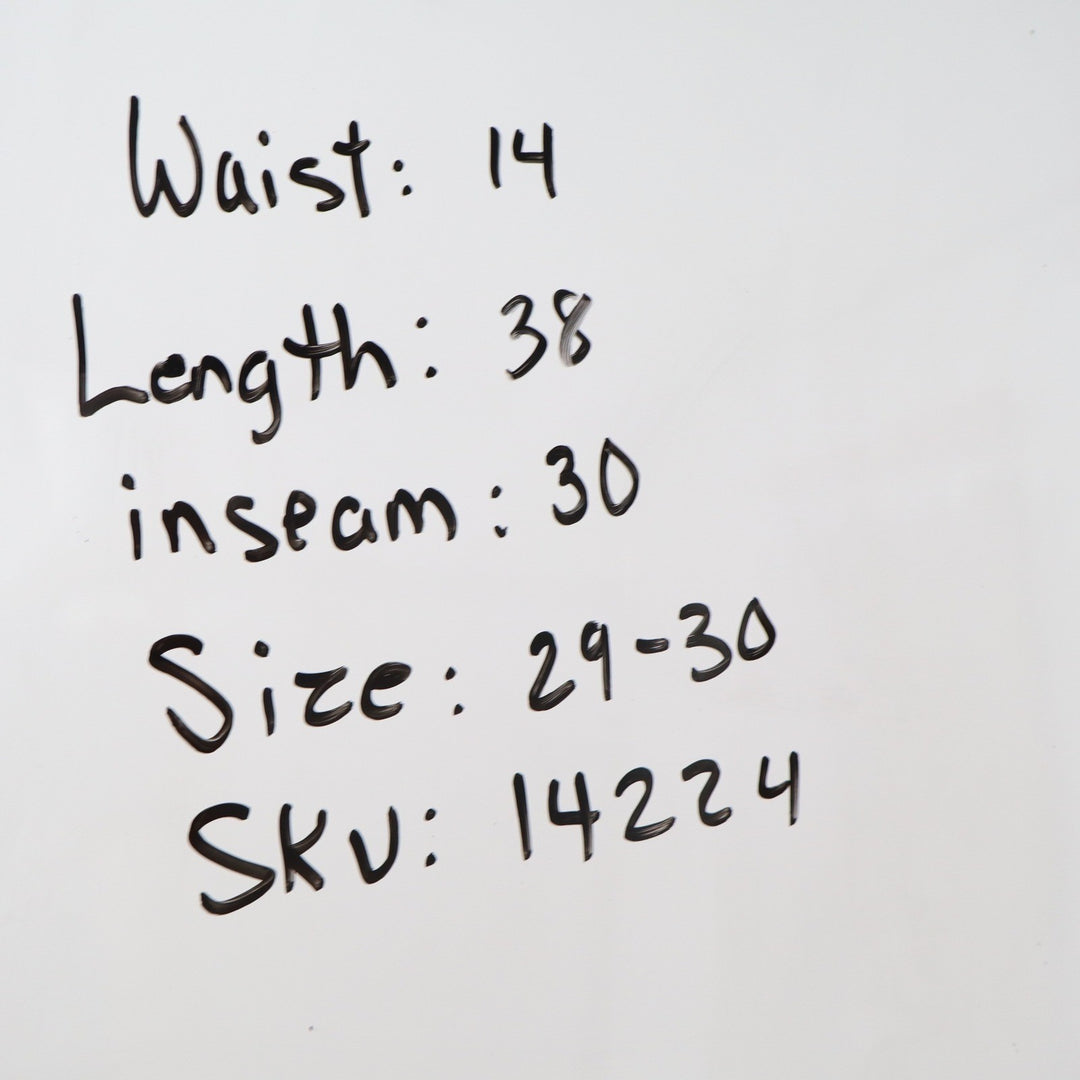 Waist: 14
Length: 38
inseam: 30
Size: 29-30
SKU: 14224